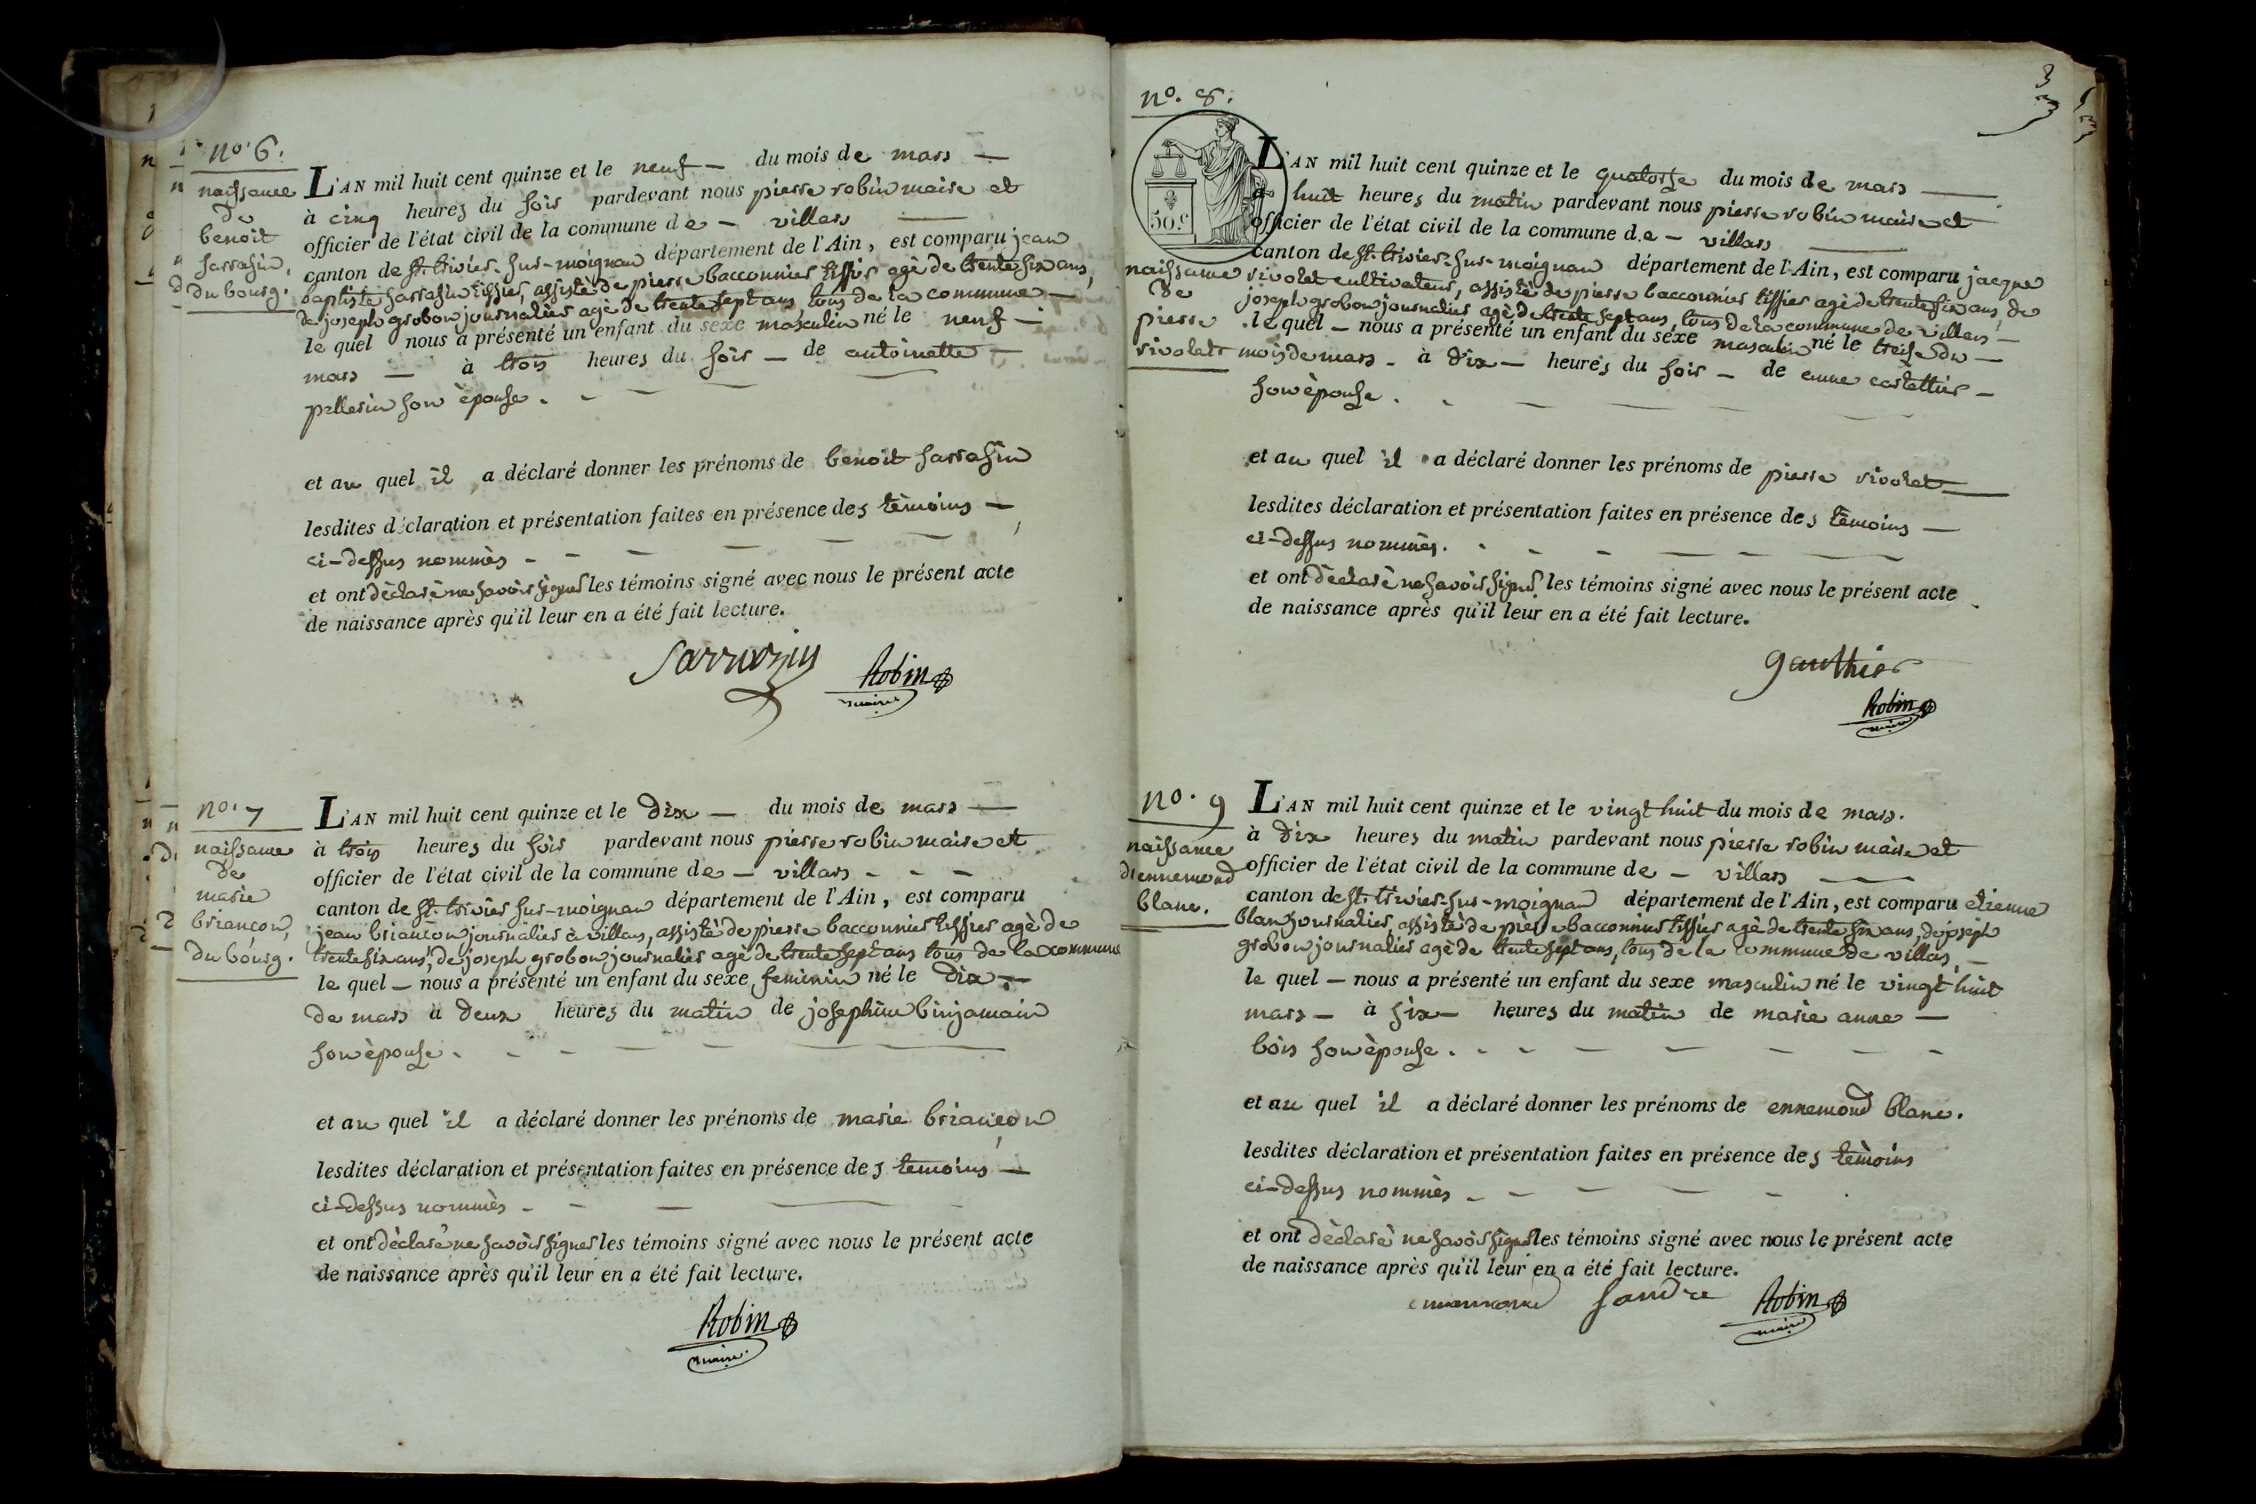 n.o 6.
naissance
de
benoit
sarrasin,
du bourg.
L'AN mil huit cent quinze et le neuf — du mois de mars —
à cinq heures du soir pardevant nous pierre robin maire et
officier de l'état civil de la commune de — villars —
canton de st. trivier-sur-moignan département de l'Ain, est comparu jean
baptiste sarrasin tissier, assisté de pierre bacconnier tissier agè de trente six ans,
de joseph grobon journalier agè de trente sept ans, tous de la commune —
le quel nous a présenté un enfant du sexe masculin né le neuf —
mars — à trois heures du soir — de antoinette —
pellerin son èpouse.
et au quel il a déclaré donner les prénoms de benoit sarrasin
lesdites déclaration et présentation faites en présence des tèmoins —
ci-dessus nommès -
et ont dèclarè ne savoir signer les témoins signé avec nous le présent acte
de naissance après qu'il leur en a été fait lecture.
Sarrazin Robin
maire
n.o 7
naissance
de
marie
briançon,
du bourg.
L'AN mil huit cent quinze et le dix — du mois de mars —
à trois heures du soir pardevant nous pierre robin maire et
officier de l'état civil de la commune de — villars - - -
canton de st. trivier sur-moignan département de l'Ain, est comparu
jean briançon journalier à villars, assistè de pierre bacconnier tissier agè de
trente six ans, de joseph grobon journalier agè de trente sept ans tous de la commune
le quel — nous a présenté un enfant du sexe feminin né le dix —
de mars à deux heures du matin de josephine binjamain
son èpouse.
et au quel il a déclaré donner les prénoms de marie briançon
lesdites déclaration et présentation faites en présence des temoins —
ci-dessus nommès -
et ont dèclarè ne savoir signer les témoins signé avec nous le présent acte
de naissance après qu'il leur en a été fait lecture.
Robin
maire.
3
n.o 8.
50 c.
naissance
de
pierre
rivolet
L'AN mil huit cent quinze et le quatorze du mois de mars —
à huit heures du matin pardevant nous pierre robin maire et
officier de l'état civil de la commune de — villars —
canton de st. trivier-sur-moignan département de l'Ain, est comparu jacque
rivolet cultivateur, assistè de pierre bacconnier tissier agè de trente six ans, de
joseph grobon journalier agè de trente sept ans, tous de la commune de villars —
le quel — nous a présenté un enfant du sexe masculin né le treise du —
mois de mars - à dix — heures du soir — de anne castellier —
son èpouse.
et au quel il a déclaré donner les prénoms de pierre rivolet —
lesdites déclaration et présentation faites en présence des tèmoins —
ci-dessus nommès.
et ont dèclarè ne savoir signer les témoins signé avec nous le présent acte
de naissance après qu'il leur en a été fait lecture.
gauthier
Robin
maire
n.o 9
naissance
d'ennemond
blanc.
L'AN mil huit cent quinze et le vingt huit du mois de mars.
à dix heures du matin pardevant nous pierre robin maire et
officier de l'état civil de la commune de — villars —
canton de st. trivier-sur-moignan département de l'Ain, est comparu etienne
blanc journalier, assistè de pierre bacconnier tissier agè de trente six ans, de joseph
grobon journalier agè de trente sept ans, tous de la commune de villars, —
le quel — nous a présenté un enfant du sexe masculin né le vingt huit
mars — à six — heures du matin de marie anne —
bois son èpouse.
et au quel il a déclaré donner les prénoms de ennemond blanc.
lesdites déclaration et présentation faites en présence des tèmoins
ci-dessus nommès -
et ont dèclarè ne savoir signer les témoins signé avec nous le présent acte
de naissance après qu'il leur en a été fait lecture.
sandre Robin
maire